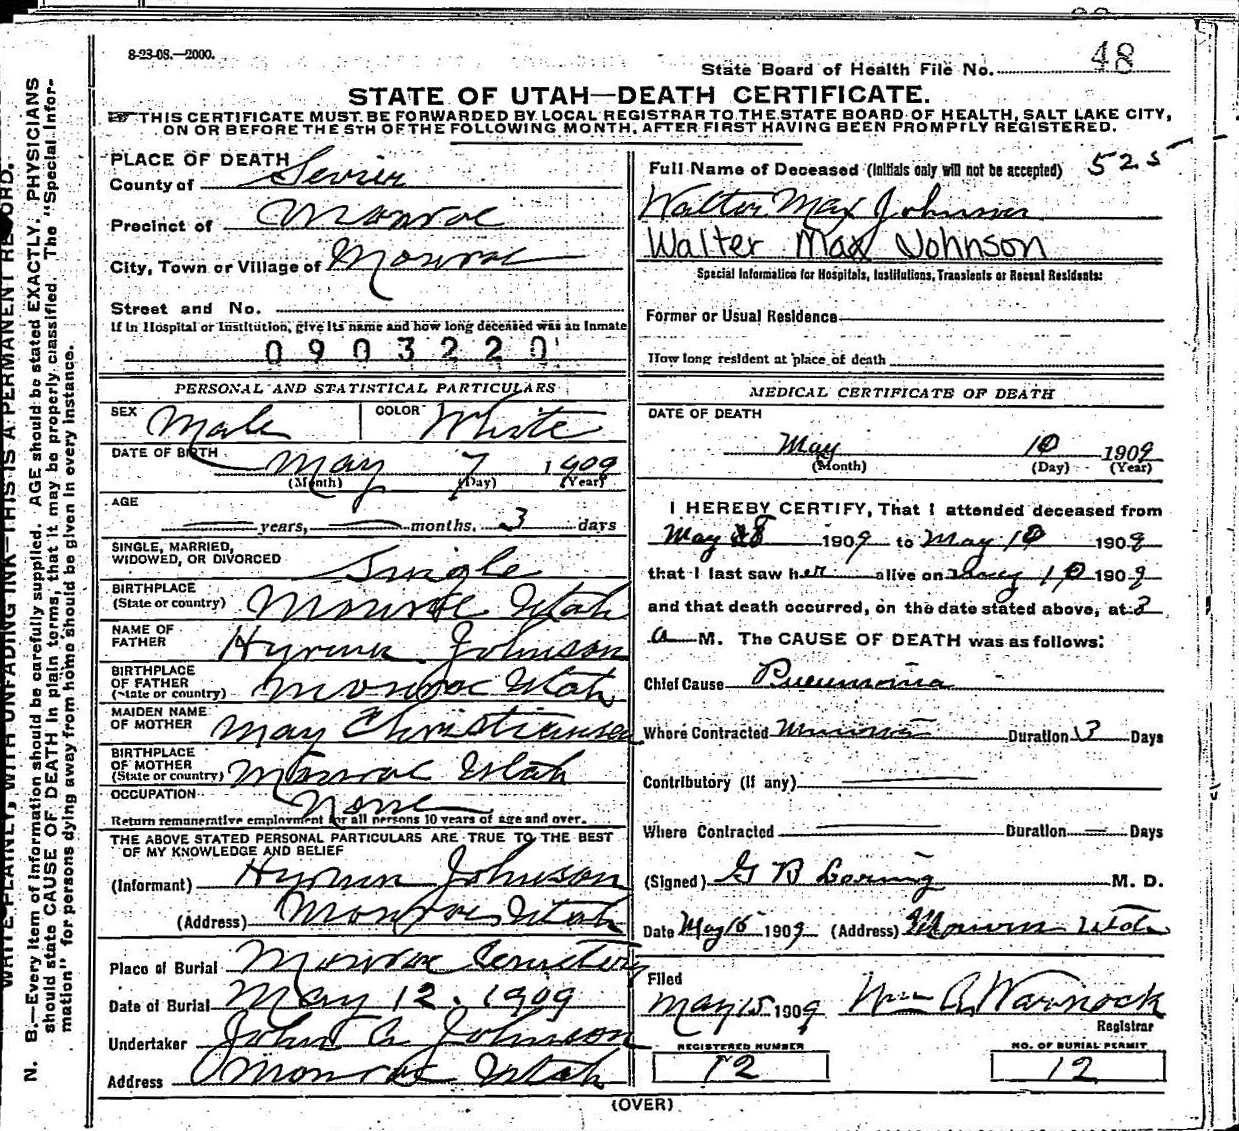 8-23-08.—2000.
State Board of Health File No. 48
STATE OF UTAH—DEATH CERTIFICATE.
☞ THIS CERTIFICATE MUST BE FORWARDED BY LOCAL REGISTRAR TO THE STATE BOARD OF HEALTH, SALT LAKE CITY,
ON OR BEFORE THE 5TH OF THE FOLLOWING MONTH, AFTER FIRST HAVING BEEN PROMPTLY REGISTERED.
PLACE OF DEATH
County of Sevier
Precinct of Monroe
City, Town or Village of Monroe
Street and No.
If in Hospital or Institution, give its name and how long deceased was an Inmate
0903220
PERSONAL AND STATISTICAL PARTICULARS
SEX Male COLOR White
DATE OF BIRTH May 7 1909
(Month) (Day) (Year)
AGE
— years, — months. 3 days
SINGLE, MARRIED,
WIDOWED, OR DIVORCED Single
BIRTHPLACE
(State or country) Monroe Utah
NAME OF
FATHER Hyrum Johnson
BIRTHPLACE
OF FATHER
(State or country) Monroe Utah
MAIDEN NAME
OF MOTHER May Christiansen
BIRTHPLACE
OF MOTHER
(State or country) Monroe Utah
OCCUPATION None
Return remunerative employment for all persons 10 years of age and over.
THE ABOVE STATED PERSONAL PARTICULARS ARE TRUE TO THE BEST
OF MY KNOWLEDGE AND BELIEF
(Informant) Hyrum Johnson
(Address) Monroe Utah
Place of Burial Monroe Cemetery
Date of Burial May 12. 1909
Undertaker John A Johnson
Address Monroe Utah
Full Name of Deceased (Initials only will not be accepted) 525
Walter Max Johnson
Walter Max Johnson
Special Information for Hospitals, Institutions, Transients or Recent Residents:
Former or Usual Residence
How long resident at place of death
MEDICAL CERTIFICATE OF DEATH
DATE OF DEATH
May 10 1909
(Month) (Day) (Year)
I HEREBY CERTIFY, That I attended deceased from
May 8 1909 to May 10 1909
that I last saw her alive on May 10 1909
and that death occurred, on the date stated above, at 3
a M. The CAUSE OF DEATH was as follows:
Chief Cause Pneumonia
Where Contracted Monroe Duration 3 Days
Contributory (if any) —
Where Contracted — Duration — Days
(Signed) G B Loring M. D.
Date May 15 1909 (Address) Monroe Utah
Filed
May 15 1909 Wm A. Warnock
Registrar
REGISTERED NUMBER
12
NO. OF BURIAL PERMIT
12
(OVER)
WRITE PLAINLY, WITH UNFADING INK—THIS IS A PERMANENT RECORD.
N. B.—Every item of information should be carefully supplied. AGE should be stated EXACTLY. PHYSICIANS
should state CAUSE OF DEATH in plain terms, that it may be properly classified. The "Special Infor-
mation" for persons dying away from home should be given in every instance.